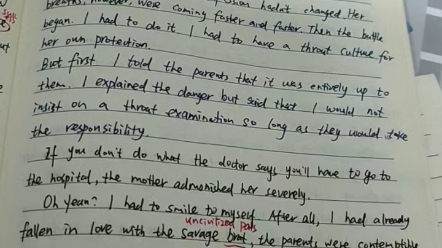 hadn't changed. Her
breaths, however, were coming faster and faster. Then the battle
began. I had to do it I had to have a throat culture for
her own protection.
But first I told the parents that it was entirely up to
them. I explained the danger but said that I would not
insist on a throat examination so long as they would take
the responsibility
If you don't do what the doctor says you'll have to go to
the hospital, the mother admonished her severely.
Oh yeah? I had to smile to myself After all, I had already
uncivilized
fallen in love with the savage brat, the parents were contemptible